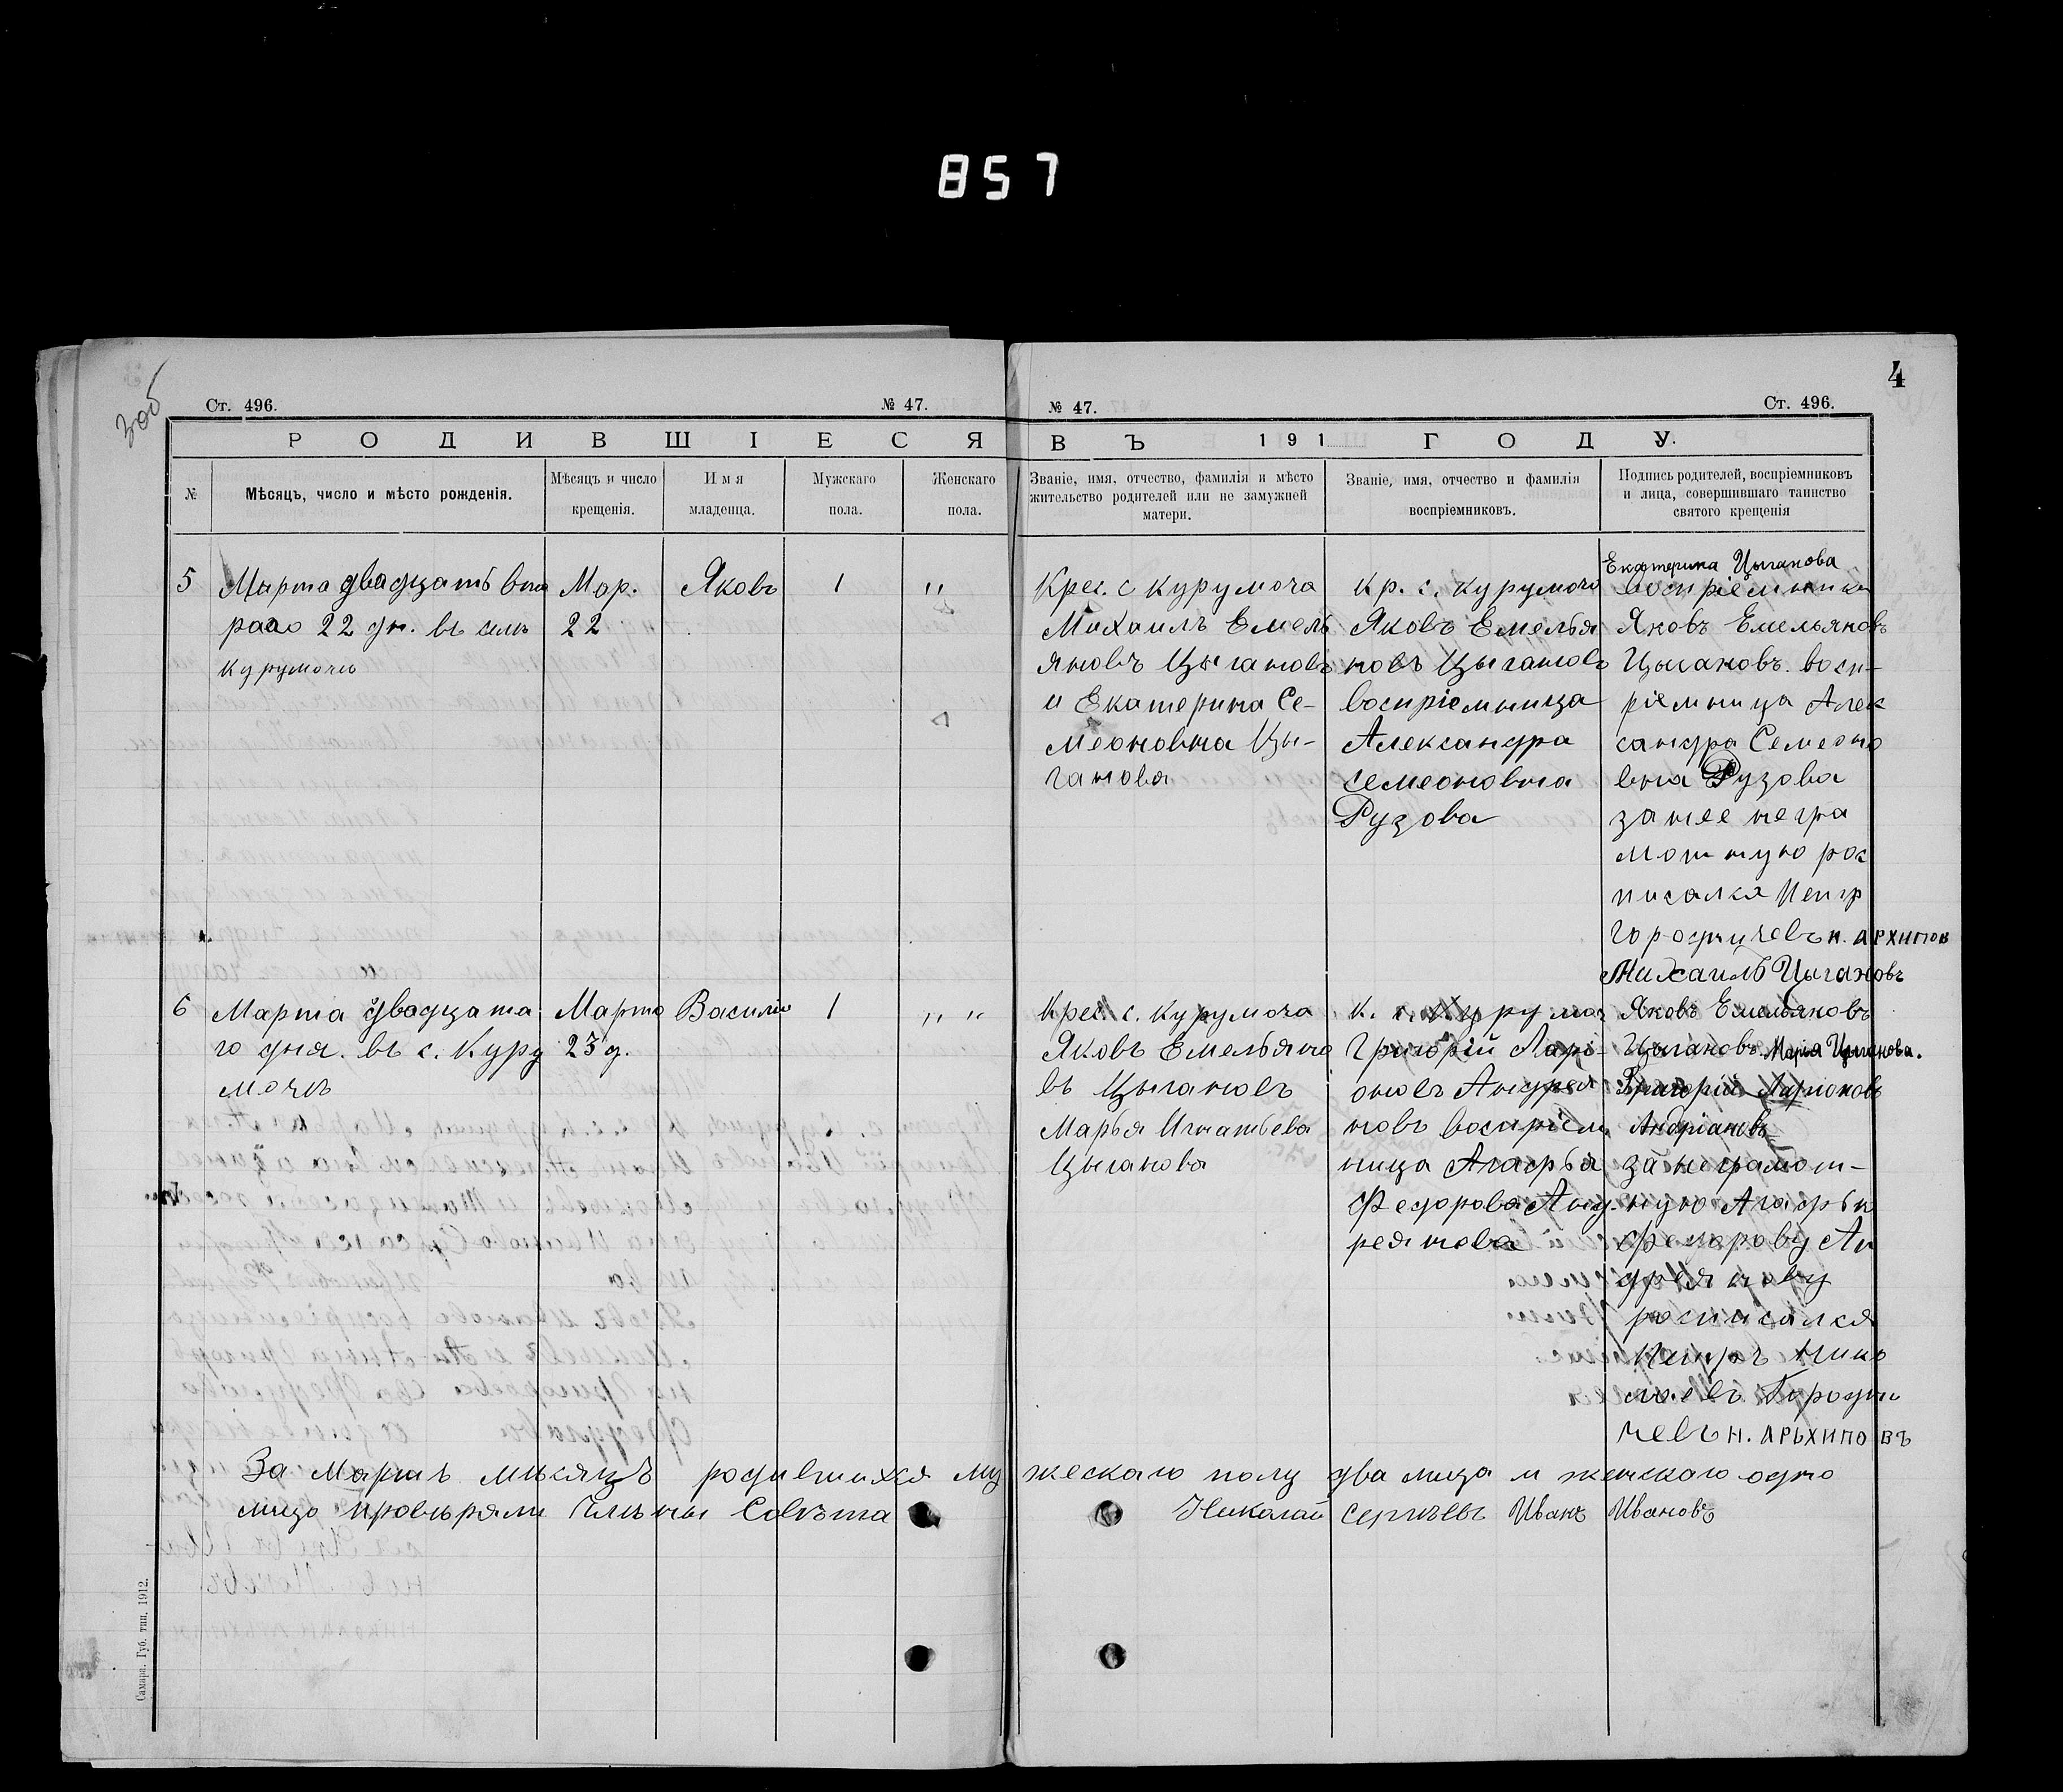 857
4
зоб
Ст. 496.
№ 47.
№ 47.
Ст. 496.
РОДИВШІЕСЯ
ВЪ 191 ГОДУ.
№
Мѣсяцъ, число и мѣсто рожденія.
Мѣсяцъ и число крещенія.
Имя младенца.
Мужскаго пола.
Женскаго пола.
Званіе, имя, отчество, фамилія и мѣсто
жительство родителей или не замужней
матери.
Званіе, имя, отчество и фамилія
воспріемниковъ.
Подпись родителей, воспріемниковъ
и лица, совершившаго таинство
святого крещенія
5
Марта двадцать вто
раго 22 дн. въ селъ
курумочъ
Мар.
22
Яковъ
1
"
Крес. с курумоча
Михаилъ Емель
яновъ Цыгановъ
и Екатерина Се-
меоновна Цы-
ганова
кр. с. курумоча
Яковъ Емелья
новъ Цыгановъ
воспріемница
Александра
семеоновна
Рузова
Екатерина Цыганова
воспріемники
Яковъ Емельяновъ
Цыгановъ. восп-
ріемница Алек
сандра Семеоно
вна Рузова
за нее негра
мотную рос
писался Петр
городничевъ н. АРХИПОВ
Михаилъ Цыгановъ
6
Марта двадцата
го дня. въ с. Куру
мочъ
Марта
23 д.
Василій
1
" "
Крес. с. курумоча
Яковъ Емельяно
въ Цыгановъ
Марья Игнатьева
Цыганова
к. с. Курумоч
Григорій Ларі-
оновъ Андрея
новъ воспріем
ница Агафья
Федорова Анд-
реянова
Яковъ Емельяновъ
Цыгановъ. Марья Цыганова.
Григорій Ларионовъ
Андріановъ
за неграмот-
ную Агафью
Федорову Ан
дреянову
росписался
Петръ Нико
лаевъ Городни
чевъ Н. АРЬХИПОВЪ
За Мартъ мъсяцъ родившихся мужескаго полу два лица и женскаго одно
лицо провъряли Члъны Совъта Николай Сергъевъ Иванъ Ивановъ
Самара. Губ. тип. 1912.